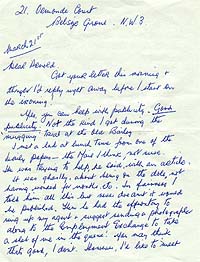 21. Ormonde Court
Belsize Grove. N.W.3
March 21st
Dear Donald
Got your letter this morning &
thought I'd reply right away before I start on
the evening.
Yes, you can help with publicity. Good
publicity. Not the kind I got during the
trial at the Old Bailey
I met a lad at lunch time from one of the
daily papers - the Mail I think, not sure.
He was trying to help he said, with an article.
It was ghastly, about being on the dole, not
having worked for months etc. In fairness I
told him all this last week and it would
be published. Then he had the opportunity to
ring up my agent & suggest sending a photographer
along to the Employment Exchange to take
a shot of me in the queue. You may think
that's good, I don't. However, I'd like to meet